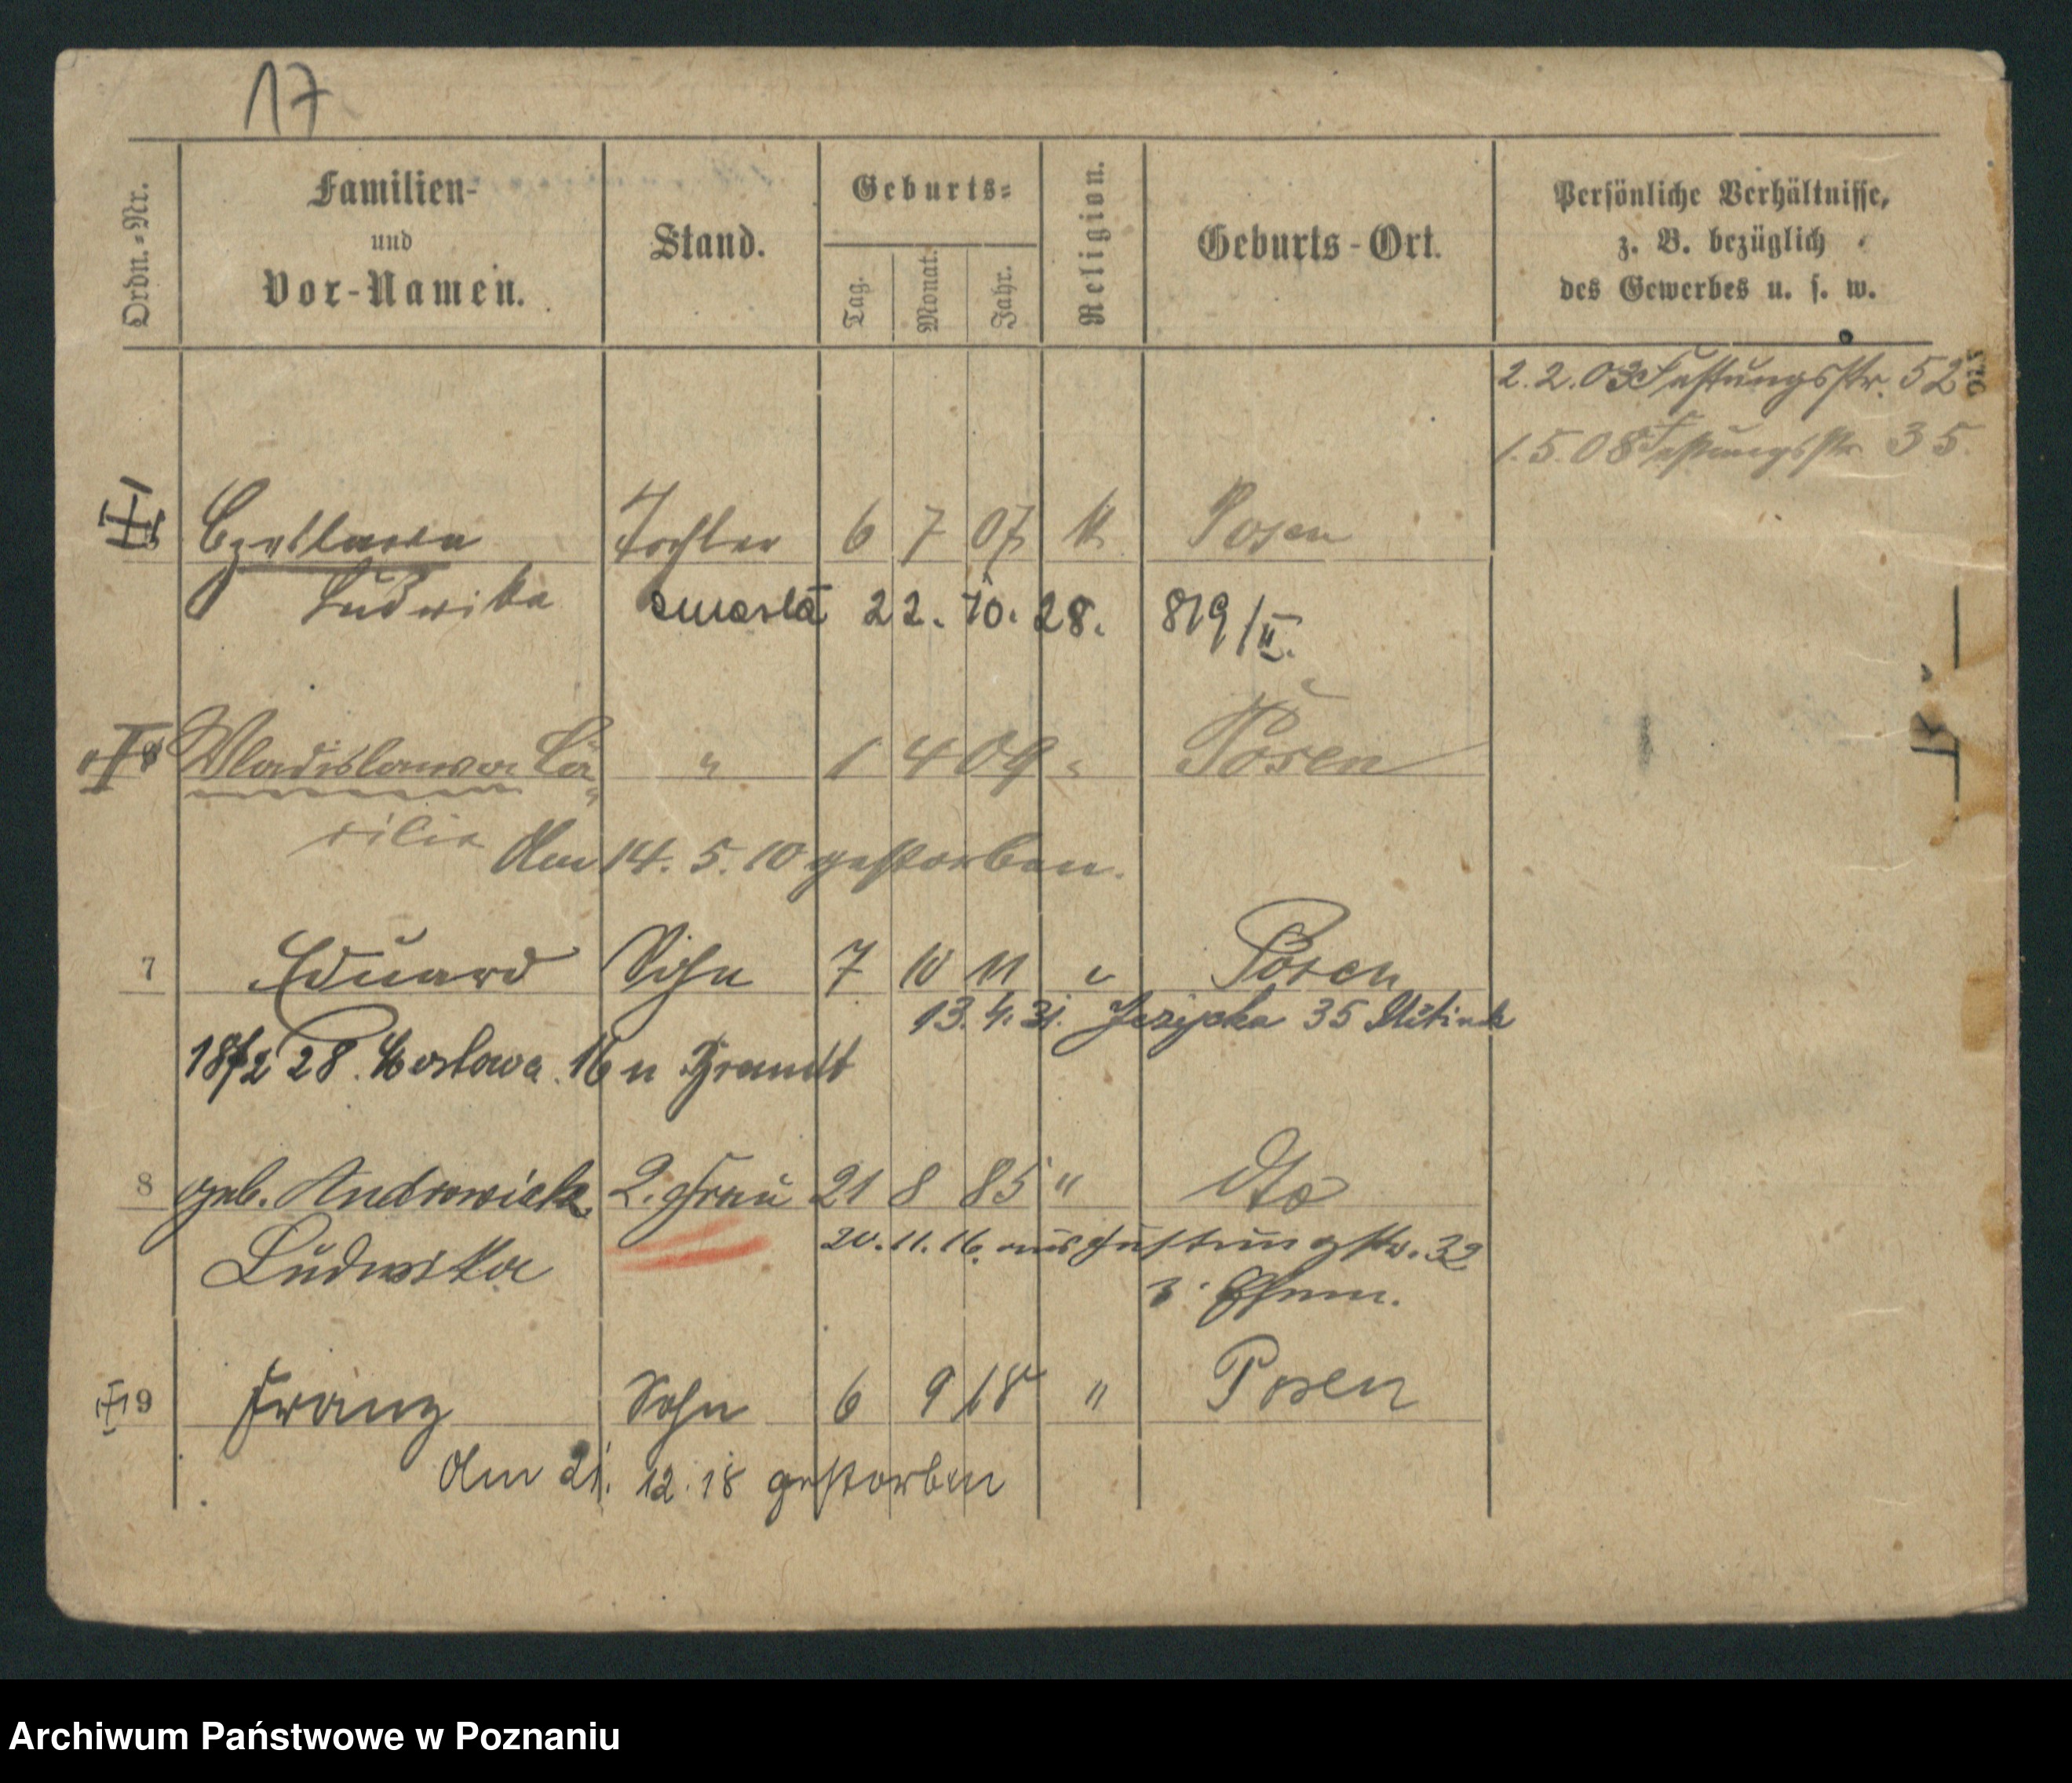 17
Ordn.-Nr.
Familien-
und
Vor-Namen.
Stand.
Geburts-
Tag.
Monat.
Jahr.
Religion.
Geburts-Ort.
Persönliche Verhältnisse,
z. B. bezüglich
des Gewerbes u. s. w.
2.2.03 Festungsstr. 52
1.5.08 Festungsstr. 35
Czeslawa Tochter 6 7 07 k. Posen
Ludwika zmarła 22. 10. 28. 819/II.
Wladislawa Cä- " 1 4 09 " Posen
cilie Am 14. 5. 10 gestorben.
7 Eduard Sohn 7 10 11 " Posen
13. 4. 31. Jeżycka 35
28. 16 u Brandt
8 geb. Androwiak 2. Frau 21 8 85 " Dto
Ludwika 20. 11. 16. aus Festungstr. 32
z. Ehem.
9 Franz Sohn 6 9 18 " Posen
Am 21. 12. 18 gestorben
Archiwum Państwowe w Poznaniu